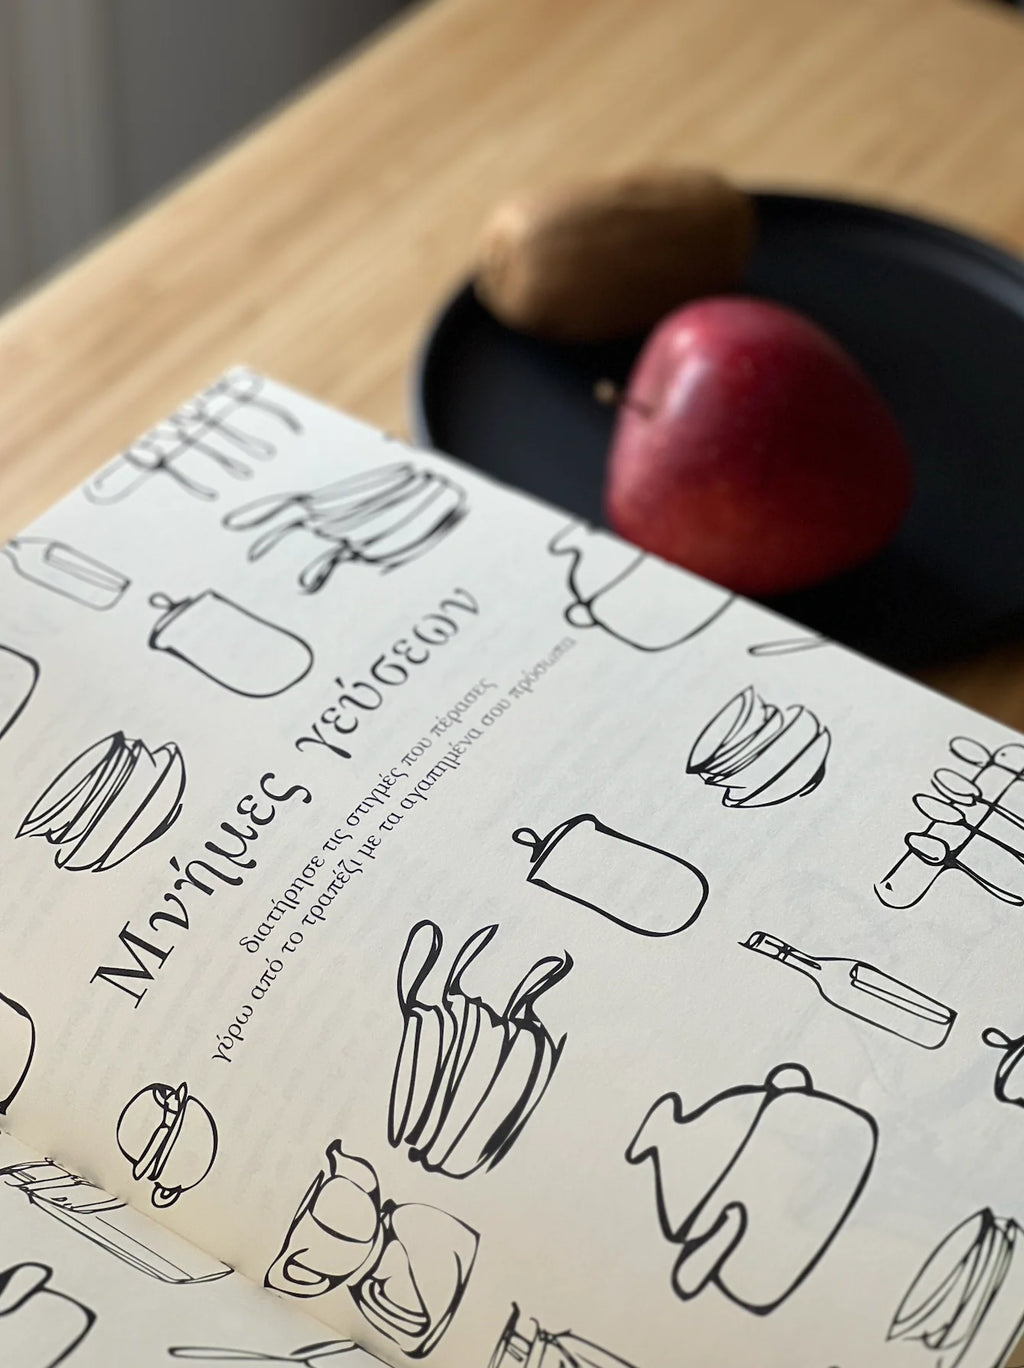 Μνήμες γεύσεων
διατήρησε τις στιγμές που πέρασες
γύρω από το τραπέζι με τα αγαπημένα σου πρόσωπα